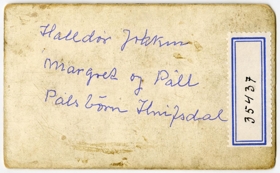 Halldór
Margret og Páll
Palsbörn Hnifsdal
35437